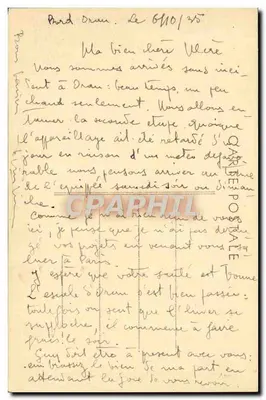 Oran. Le 6/10/35
Ma bien chère Mère
Nous sommes arrivés sans inci-
dent à Oran: beau temps, un peu
chaud seulement. Nous allons en-
tamer la seconde étape, quoique
l'appareillage ait été retardé d'1
jour en raison d'un météo défavo-
rable nous pensons arriver au
de l'équipée samedi soir ou diman-
che.
Comme je n'ai rien reçu de vous
ici, je pense que je n'ai pas déran-
gé vos projets en venant vous sa-
luer à Paris.
J'espère que votre santé est bonne
L'escale d'Oran s'est bien passée:
toutefois on sent que l'hiver se
rapproche, il commence à faire
frais le soir.
Guy doit être à présent avec vous:
embrassez le bien de ma part, en
attendant la joie de vous revoir.
CARTE POSTALE
CPA